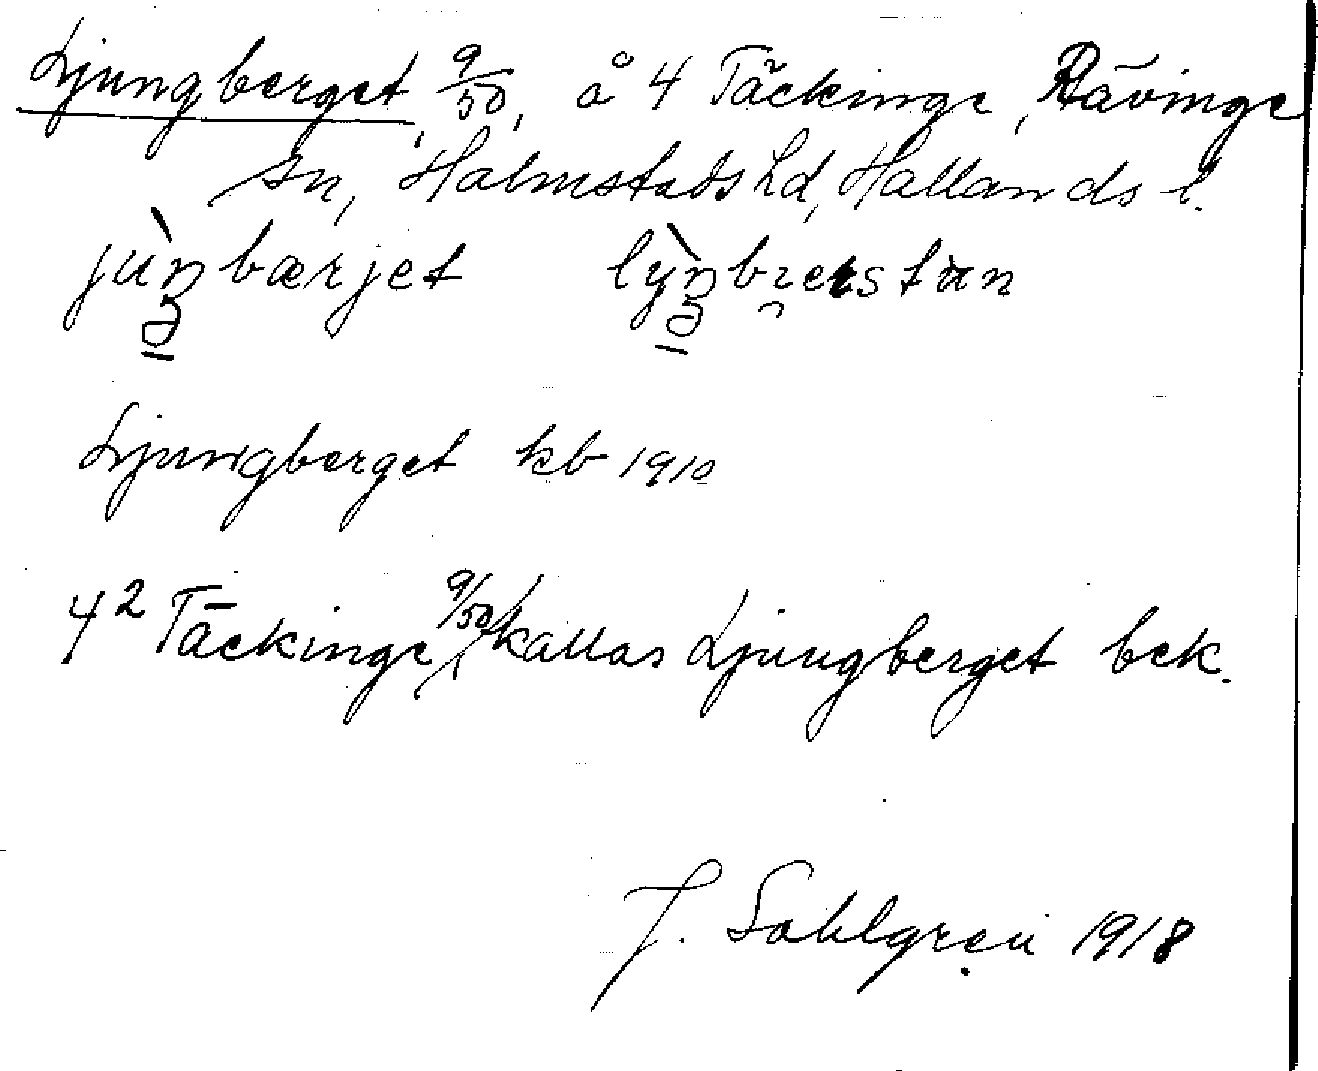 Ljungberget, 9/50, å 4 Täckinge, Rävinge
sn, Halmstads hd, Hallands l.
jùŋbærjet lỳŋb
Ljungberget kb 1910
4² Täckinge, 9/50, kallas Ljungberget bek.
J. Sahlgren 1918